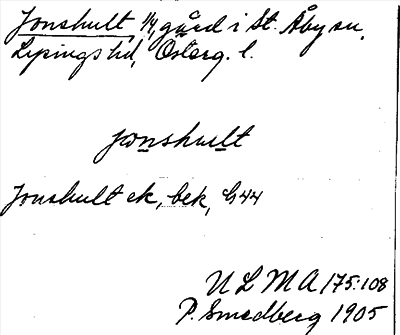 Jonshult 1/4, gård i St. Åby sn,
Lysings hd, Österg. l.
jwnshult
Jonshult ek, bek, G44
ULMA 175:108
P. Smedberg 1905